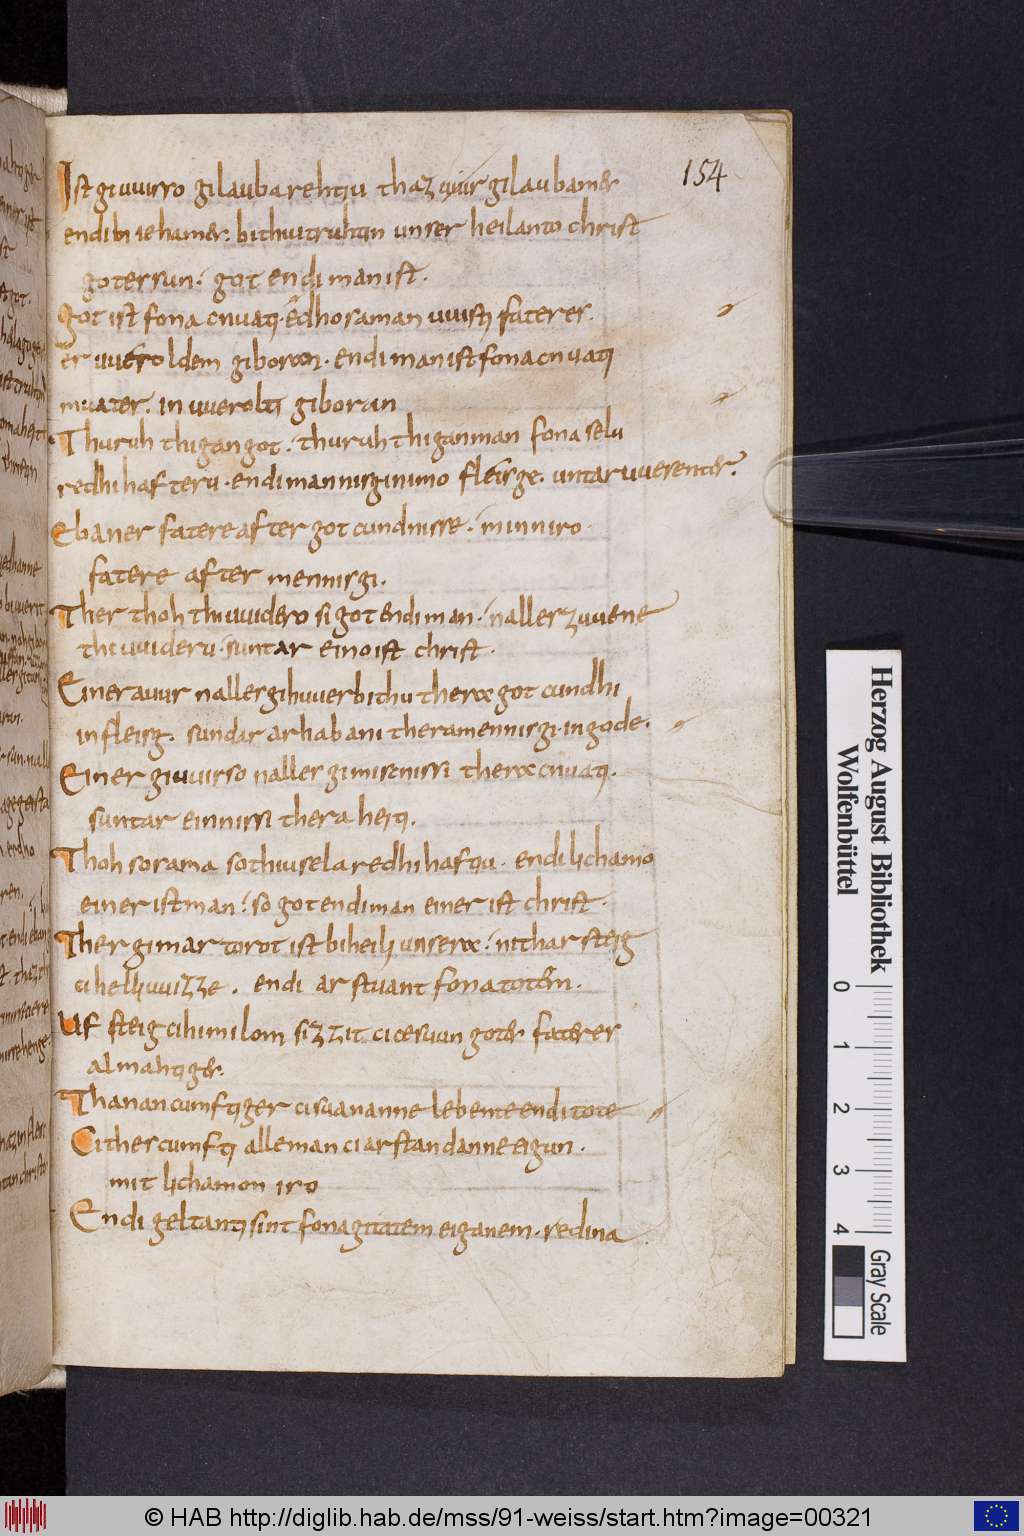 154
Ist giuuirro gilauba rehtiu thaz uuir gilaubamer
endi bi iehamer. bithiu truhtin unser heilanto christ
goter sun. got endi man ist.
Got ist fona cnuati. edho saman uuisti fateres.
er uueroldem giboran. endi man ist fona cnuati
muater. in uuerolti giboran
Thuruh thigan got. thuruh thigan man fona selu
redhihafteru. endi mannisginimo fleisge. untar uuesenter.
Ebaner fatere after gotcundnisse. minniro
fatere after mennisgi.
Ther thoh thiuuidero si got endi man. nalles zuuene
thiuuideru. suntar eino ist christ.
Einer auur nalles gihuuerbithu thera gotcundhi
in fleisg. sundar arhabani thera mennisgi. in gode.
Einer giuuisso nalles gimiscnissi thera cnuati.
suntar einnissi thera heiti.
Thoh so rama so thiu sela redhihaftiu. endi lichamo
einer ist man. so got endi man einer ist christ.
Ther gimartorot ist bi heili unsera. nithar steig
ci helliuuizze. endi arstuant fona totem.
Uf steig ci himilom sizzit ci cesuun goter fateres
almahtiger.
Thanan cumftiger ci suananne lebente endi tote
Ci thes cumfti alle man ci arstandanne eigun.
mit lichamon iro
Endi geltanti sint fona gitatem eiganem. redina
Herzog August Bibliothek
Wolfenbüttel
0 1 2 3 4
Gray Scale
© HAB http://diglib.hab.de/mss/91-weiss/start.htm?image=00321